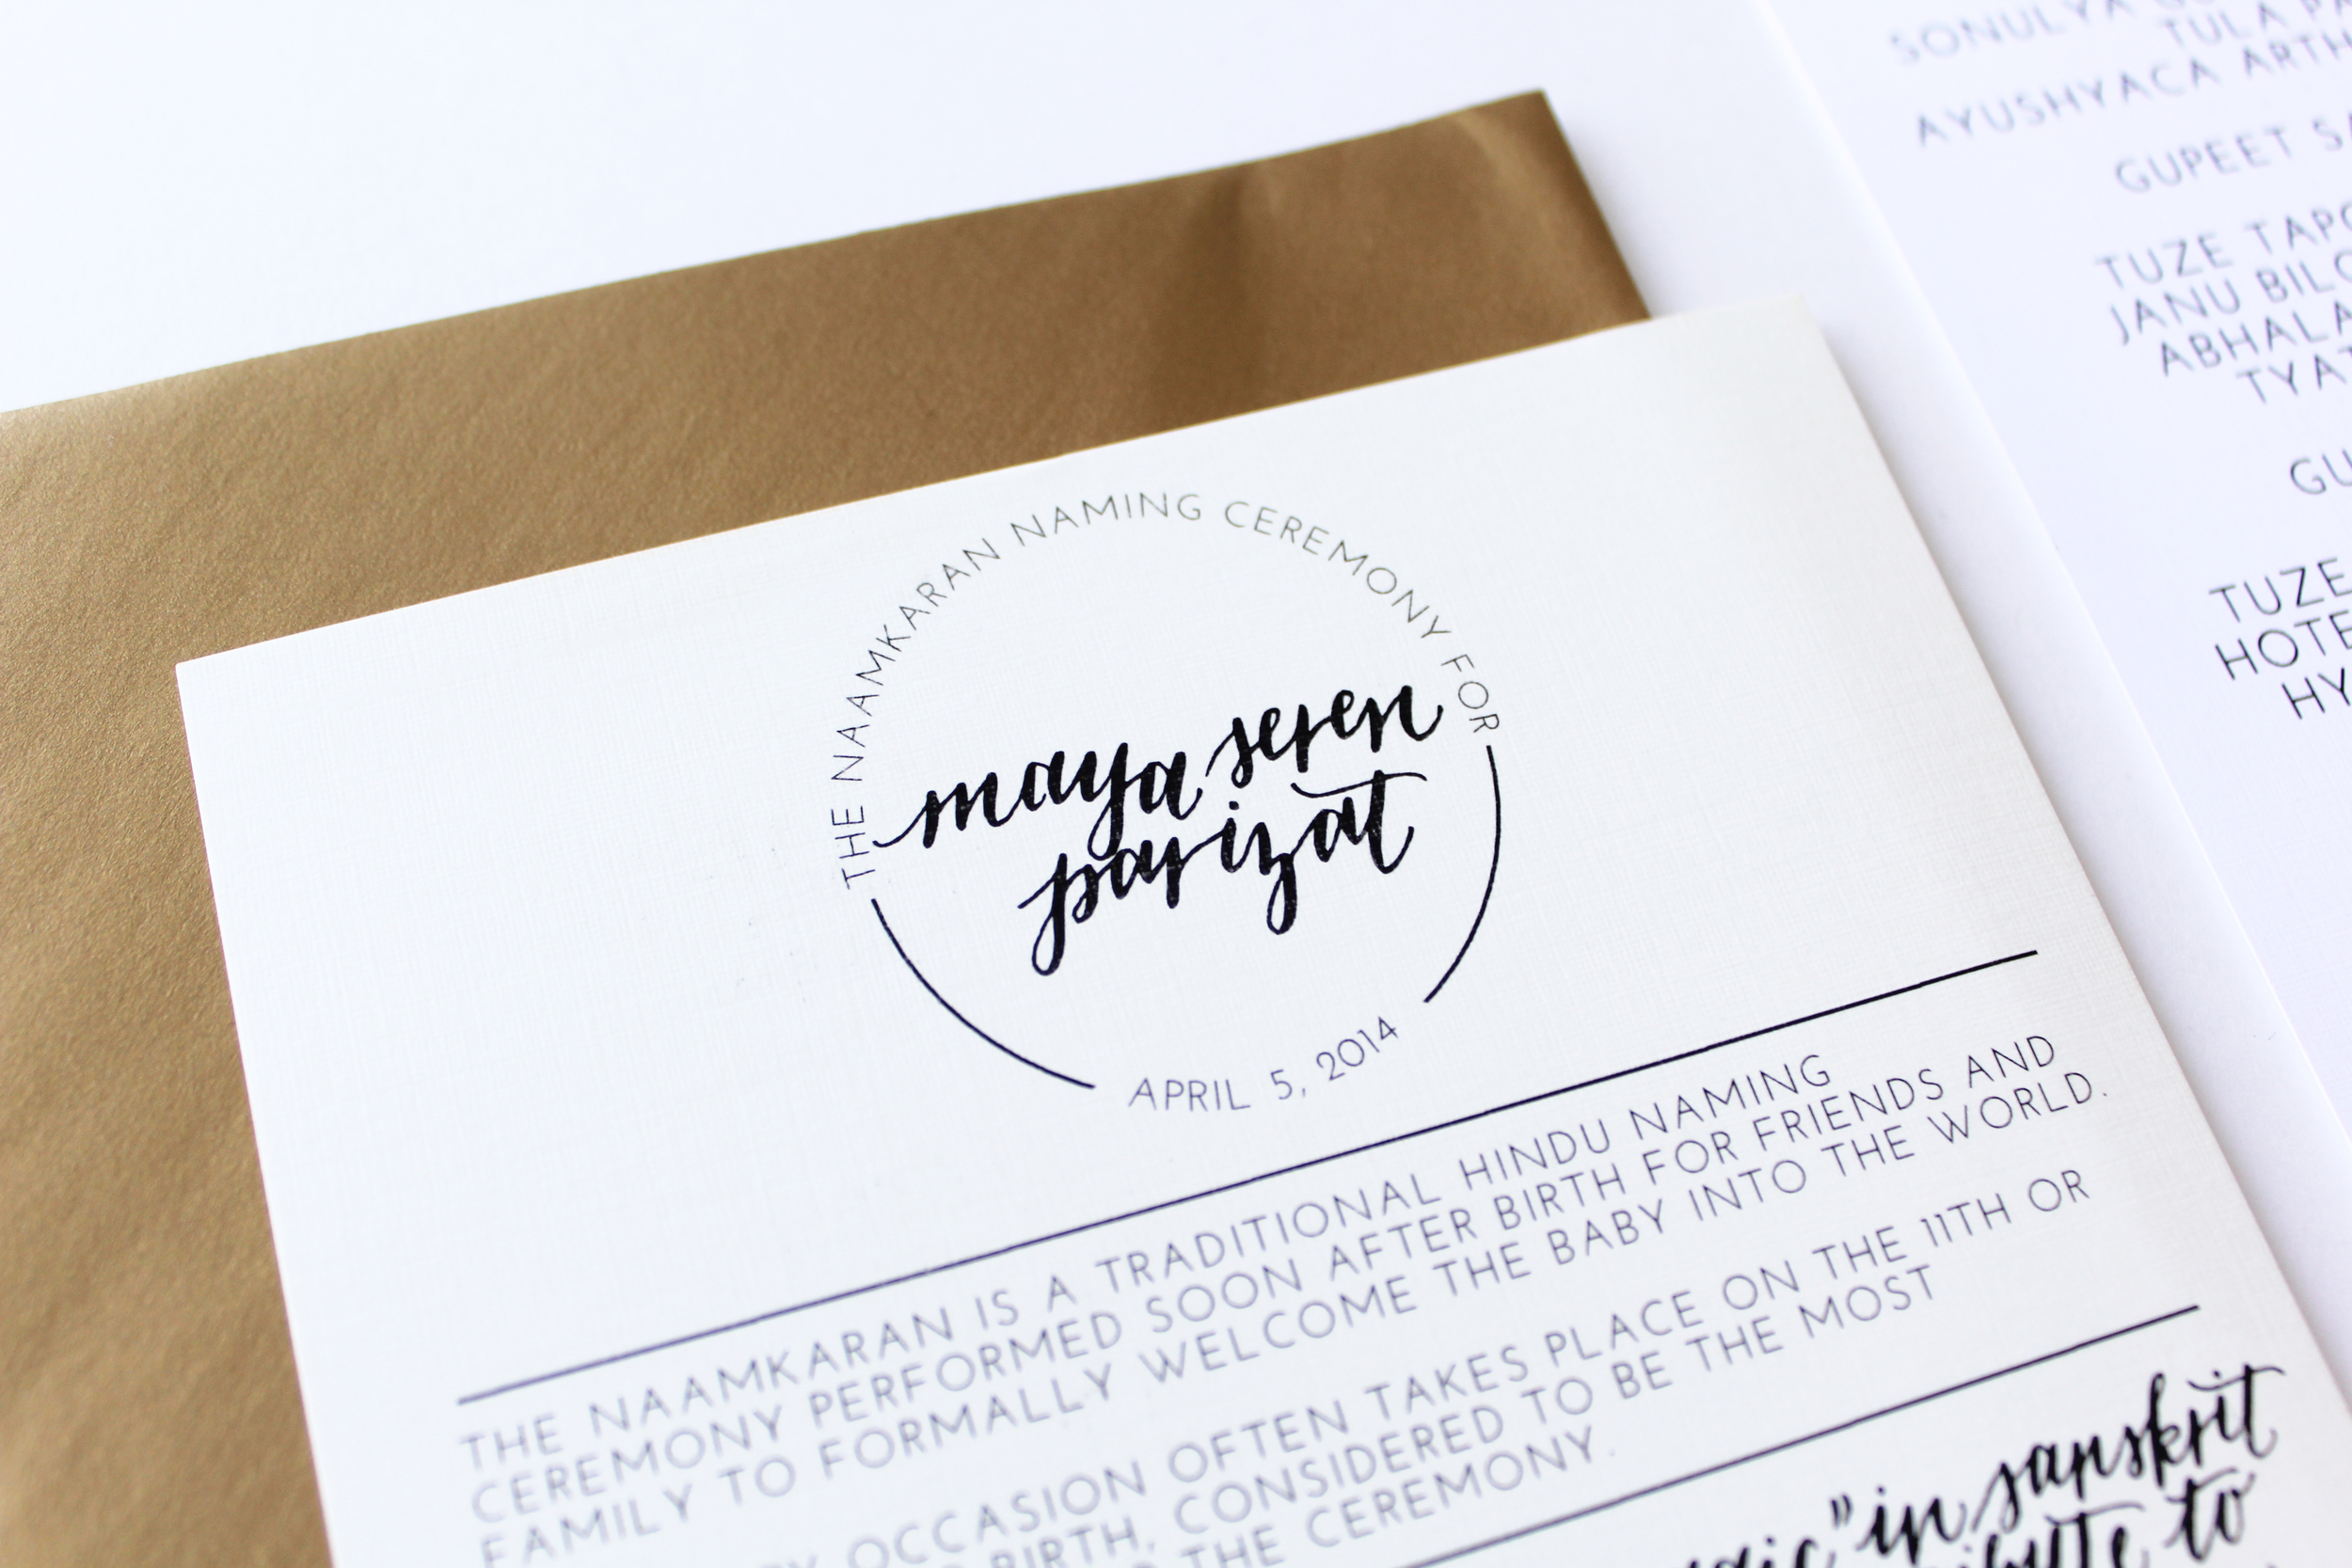 THE NAAMKARAN NAMING CEREMONY FOR
maya seren
parizat
APRIL 5, 2014
THE NAAMKARAN IS A TRADITIONAL HINDU NAMING
CEREMONY PERFORMED SOON AFTER BIRTH FOR FRIENDS AND
FAMILY TO FORMALLY WELCOME THE BABY INTO THE WORLD.
OCCASION OFTEN TAKES PLACE ON THE 11TH OR
BIRTH, CONSIDERED TO BE THE MOST
THE CEREMONY.
" in sanskrit
to
SONULYA
TULA
AYUSHYACA ARTH
GUPEET
TUZE
JANU
ABHALA
TYAT
GU
TUZE
HOTE
HY